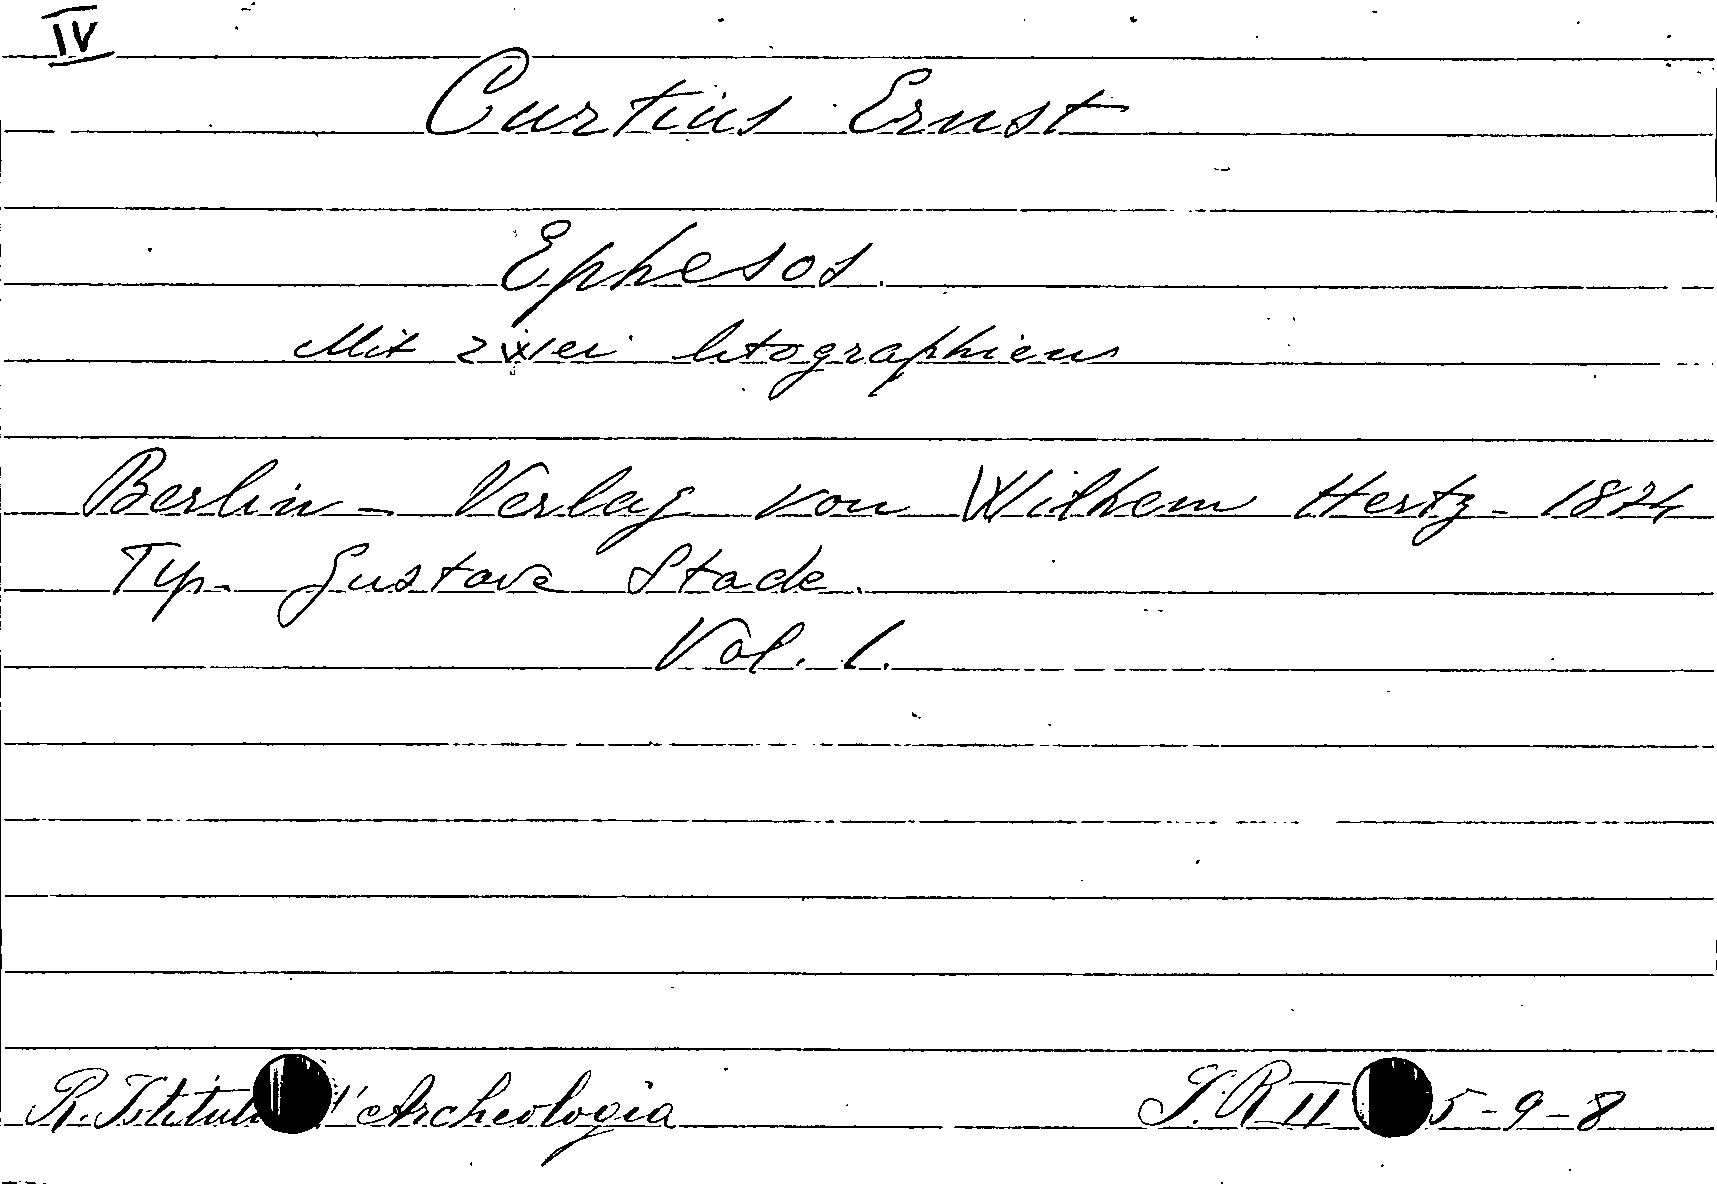 IV
Curtius Ernst
Ephesos.
Mit zwei litographien
Berlin - Verlag von Wilhem Hertz - 1874
Typ. Gustave Stade.
Vol. 1.
R. Istituto d'Archeologia S.R II 5-9-8